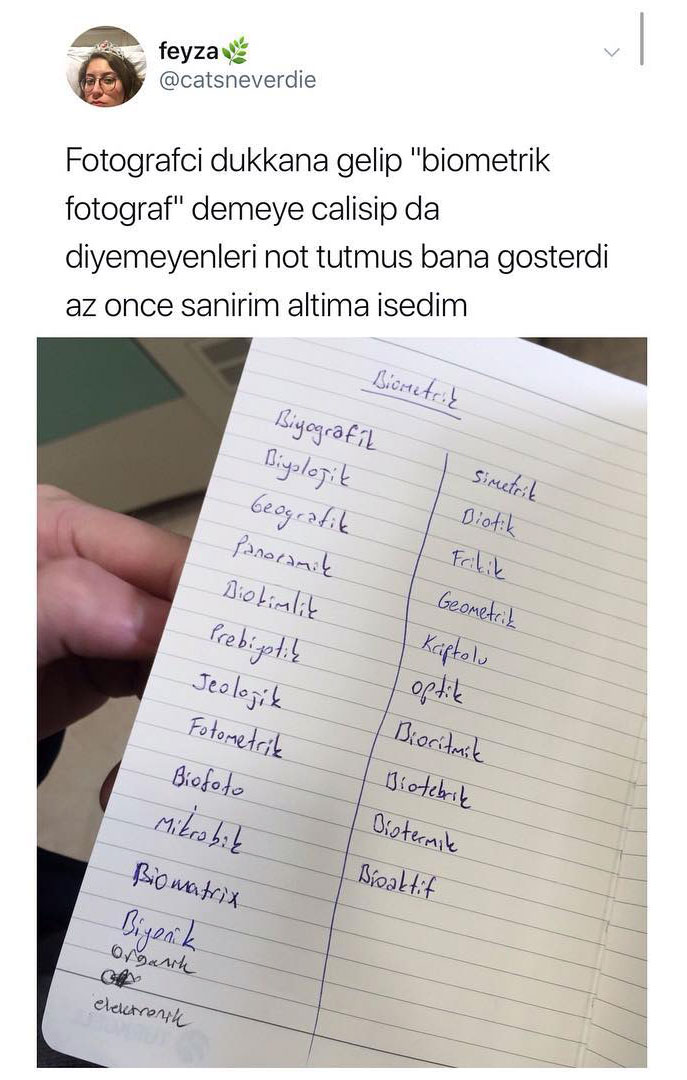 feyza🌿
@catsneverdie
Fotografci dukkana gelip "biometrik
fotograf" demeye calisip da
diyemeyenleri not tutmus bana gosterdi
az once sanirim altima isedim
Biometrik
Biyografik
Biyolojik
Geografik
Panoramik
Biokimlik
Prebiyotik
Jeolojik
Fotometrik
Biofoto
Mikrobik
Biomatrix
Biyonik
organik
elektronik
Simetrik
Biotik
Frikik
Geometrik
Kriptolu
optik
Bioritmik
Biotebrik
Biotermik
Bioaktif